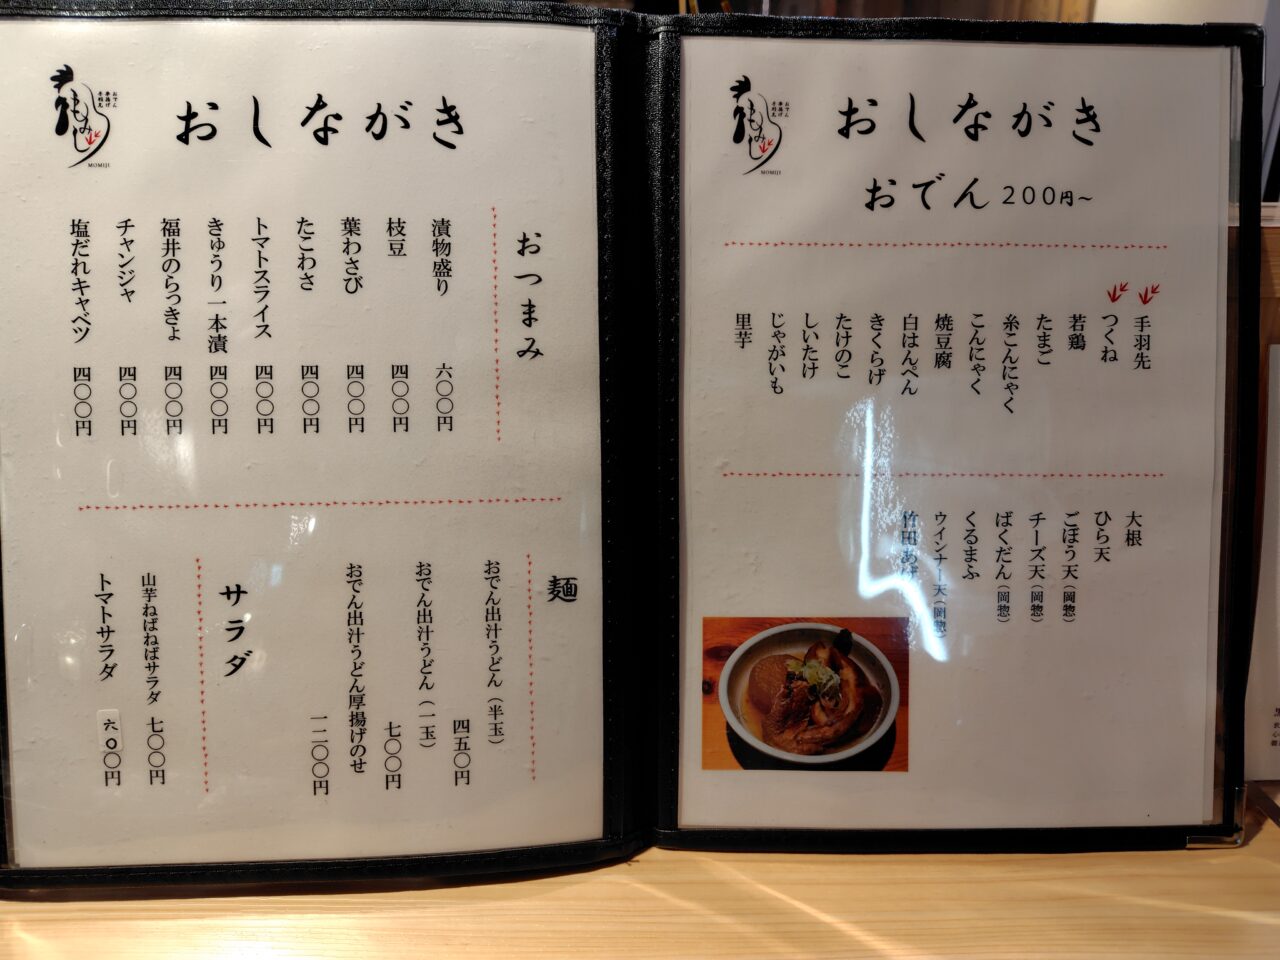 もみじ
おでん
串揚げ
MOMIJI
おしながき
おつまみ
漬物盛り 六〇〇円
枝豆 四〇〇円
葉わさび 四〇〇円
たこわさ 四〇〇円
トマトスライス 四〇〇円
きゅうり一本漬 四〇〇円
福井のらっきょ 四〇〇円
チャンジャ 四〇〇円
塩だれキャベツ 四〇〇円
麺
おでん出汁うどん（半玉） 四五〇円
おでん出汁うどん（一玉） 七〇〇円
おでん出汁うどん厚揚げのせ 一二〇〇円
サラダ
山芋ねばねばサラダ 七〇〇円
トマトサラダ 六〇〇円
もみじ
おでん
串揚げ
MOMIJI
おしながき
おでん 200円～
手羽先
つくね
若鶏
たまご
糸こんにゃく
こんにゃく
焼豆腐
白はんぺん
きくらげ
たけのこ
しいたけ
じゃがいも
里芋
大根
ひら天
ごぼう天（岡惣）
チーズ天（岡惣）
ばくだん（岡惣）
くるまふ
ウインナー天（岡惣）
竹田あげ